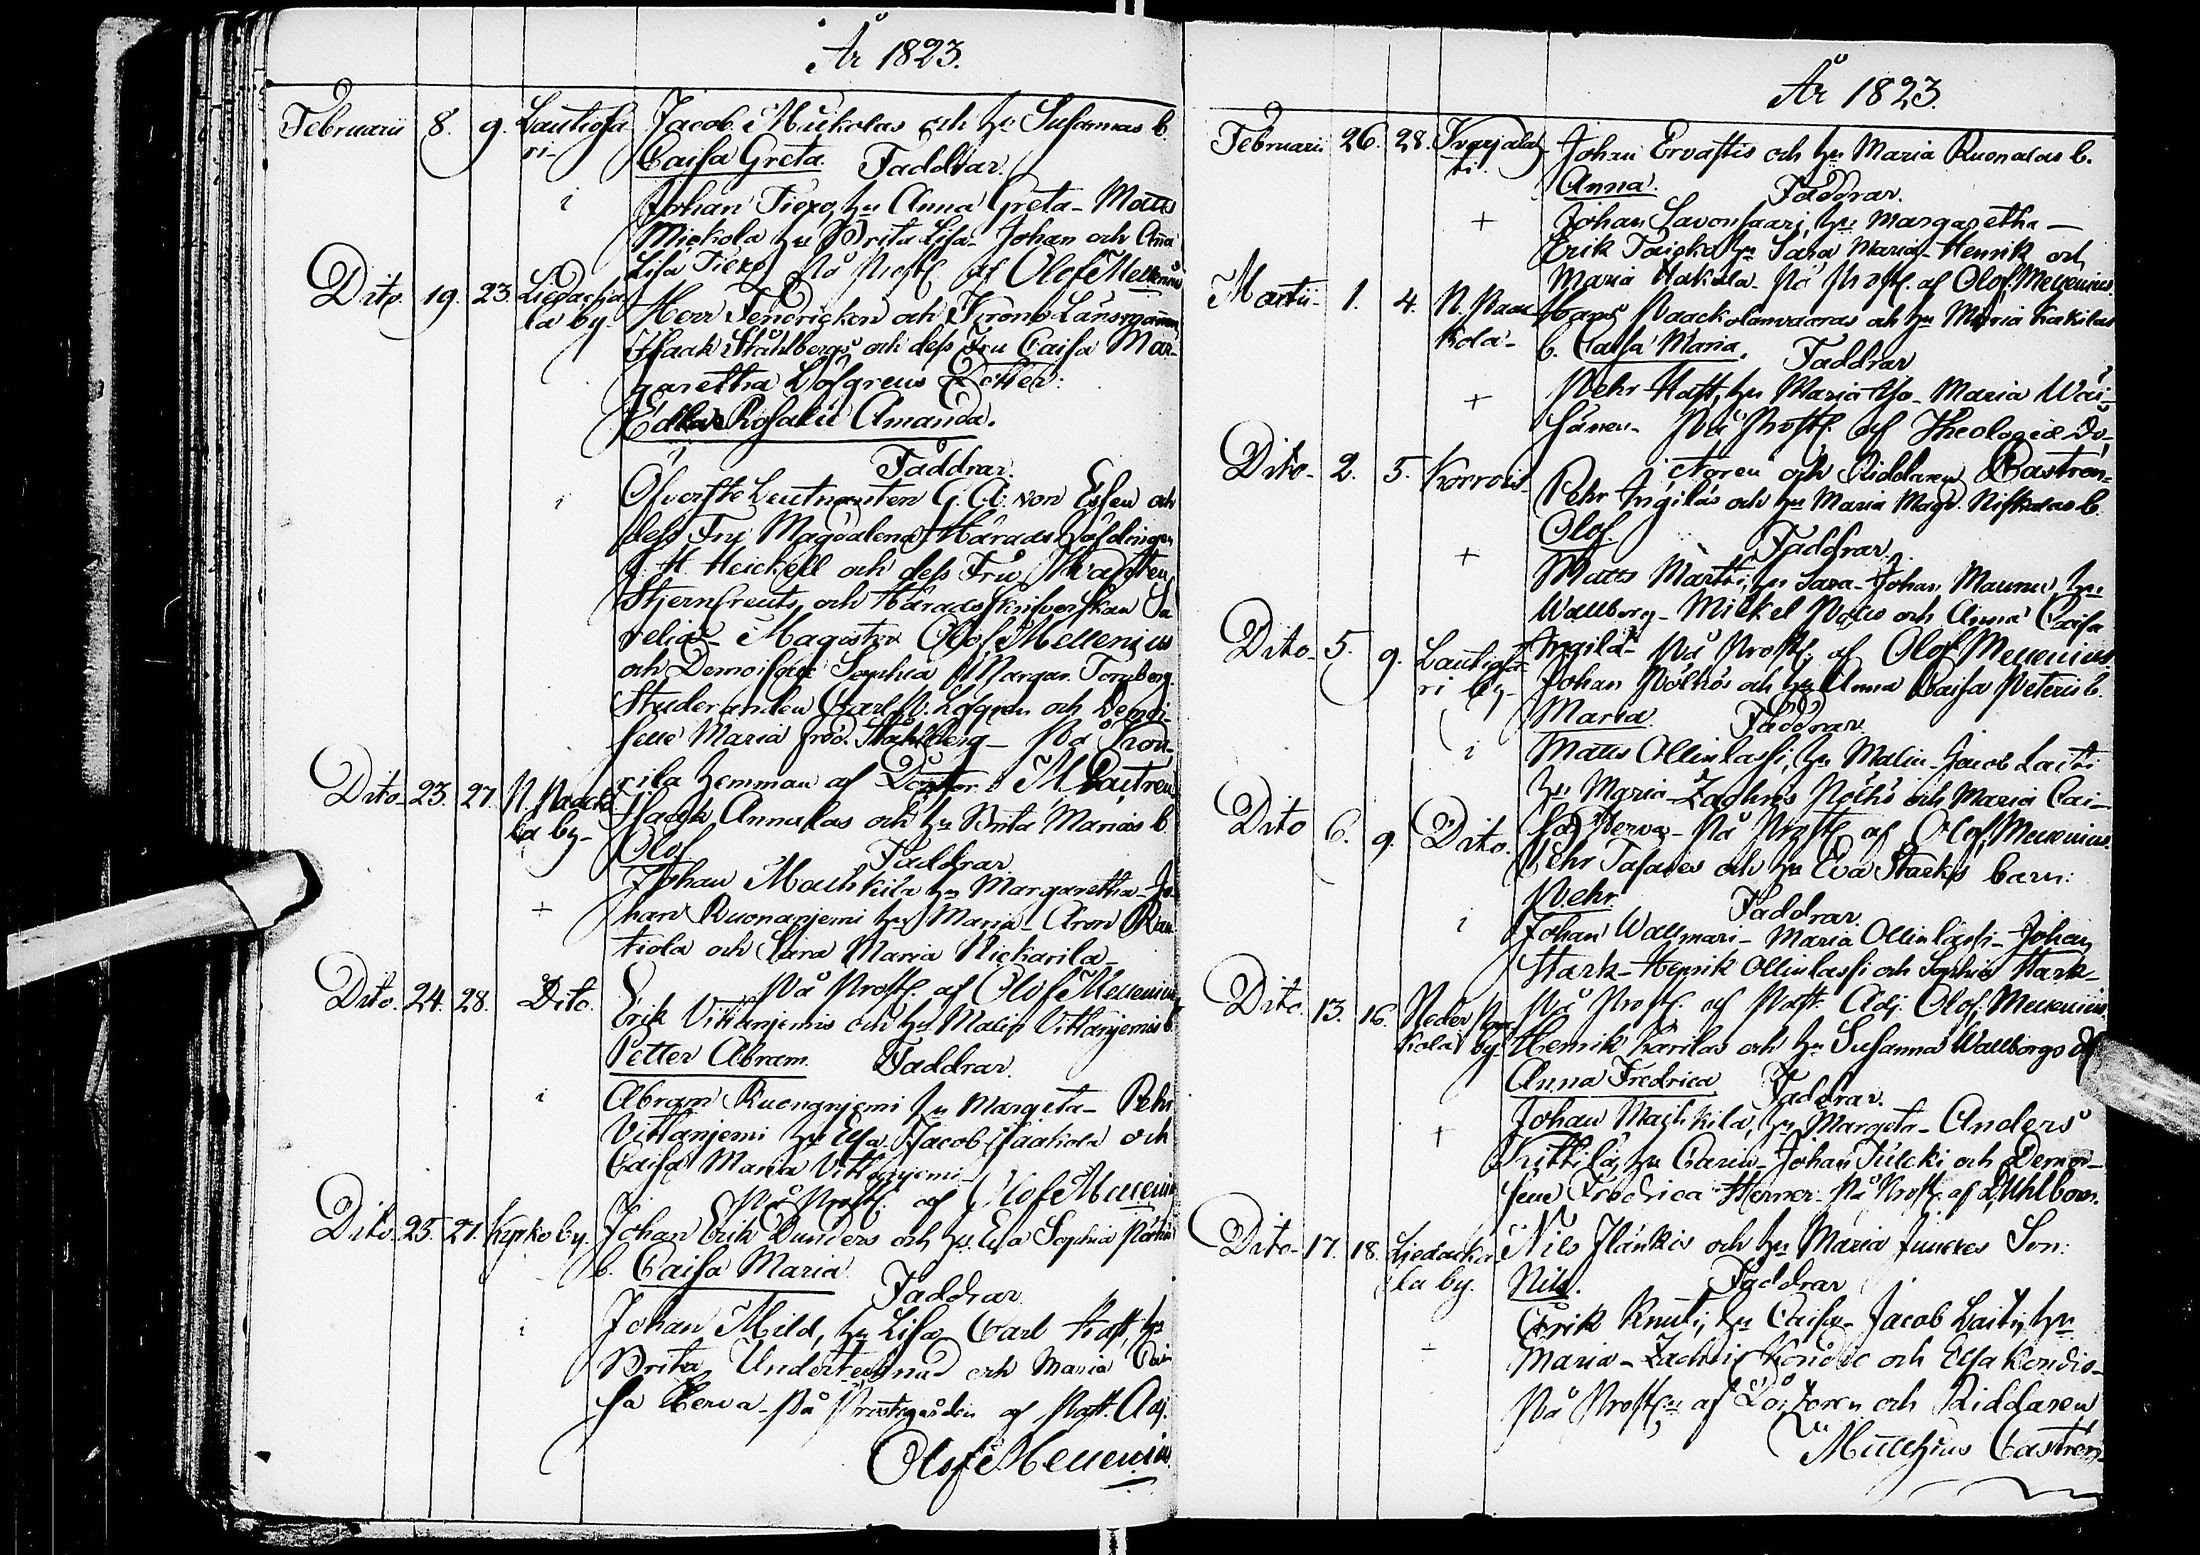 År 1823.
Februarii 8. 9. Lautiosa Jacob Mickolas och hu Susannas b.
ri- Caisa Greta. Faddrar.
i Johan Tiexo, hu Anna Greta- Matts
Mickola hu Brita Lisa- Johan och Aña
Lisa Tiexo På Prostg af Olof Mellenius
Dito. 19. 23. Liedacka Herr Fendricken och Krono Länsmannen
la by- Isaak Ståhlbergs och dess Fru Caisa Mar-
garetha Löfgrens Dotter:
Edla Rosalie Amanda.
Faddrar.
i Öfverste Leutnanten G. A. von Essen och
dess Fru Magdalena, Härads Höfdingen
H Heickell och dess Fru, Kapten
Stjerncreutz och Häradsskrifverskan
Magister Olof Mellenius
och Demoiselle Sophia Margar. Tornberg.
Studeranden Carl Löfgren och Demoi-
selle Maria Fred. Ståhlberg- På
rila hemman af Doctor M Castren
Dito- 23. 27. N. Paacko Isaak Annalas och hu Brita Marias b.
la by- Olof Faddrar
Johan Machkila hu Margaretha- Jo
+ han Ruonanjemi hu Maria- Aron Rau
tiola och Maria Nickarila-
På Prostg. af Olof Mellenius
Dito. 24. 28. Dito. Erik Vittanjemis och hu Malin Vittanjemis b.
Petter Abram. Faddrar.
i Abram Ruonanjemi hu Margeta- Pehr
Vittanjemi hu Elsa- Jacob och
Caisa Maria Vittanjemi-
På Prostg. af Olof Mellenius
Dito- 25. 27. Kyrko by. Johan Erik Dunders och hu Eva Sophia
b. Caisa Maria. Faddrar
i Johan Mild, hu Lisa, Carl Hast, hu
Brita, Undertecknad och Maria Cai
sa Kerva- På Prostgården af Past. Adj.
Olof Mellenius.
År 1823.
Februarii 26. 28. Johan Ervastis och hu Maria Ruonalas b.
Anna. Faddrar.
+ Johan Savonsaari, hu Margaretha-
Erik Taipka, hu Sara Maria- Henrik och
Maria Hakala- På Prostg. af Olof Mellenius.
Martii- 1. 4. N. Paac Hans Paackolanvaaras och hu Maria Kakilas
kola- b. Caisa Maria. Faddrar
+ Pehr Hast, hu Maria Maria Wäi-
sänen- På Prostg af Theologiæ Do-
ctoren och Riddaren Castren-
Dito- 2. 5. Korrois- Pehr Ingiläs och hu Maria Magd. Niskalas b.
Olof. Faddrar.
+ Matts Martti, hu Sara- Johan Maunu, hu
Wallborg- Mickel och Anna Caisa
Ingilä- På Prostg. af Olof Mellenius.
Dito- 5. 9. Lautiosa- Johan Pöckös och hu Anna Caisa Peteris b.
ri by- Maria Faddrar.
i Matts Ollinlassi, hu Malin- Jacob Laiti
hu Maria- Zachris och Maria Cai-
sa Kerva- På Prostg af Olof Mellenius.
Dito 6. 9. Dito. Pehr Tasares och hu Eva Starks barn:
Pehr Faddrar.
i Johan Wallmari- Maria Ollinlassi- Johan
Stark- Henrik Ollinlassi och Sophia Stark-
På Prostg af Past. Adj. Olof Mellenius.
Dito. 13. 16. Neder Paac Henrik Karilas och hu Susanna Wallborgs d
kola by- Anna Fredrica Faddrar.
+ Johan Machkila, hu Margeta- Anders
Kittilä, hu Carin- Johan Tulcki och Demoi-
selle Fredrica Herner- På Prostg. af Uhlbom.
Dito- 17. 18. Liedacka Nils Jlänkis och hu Maria Junckes Son:
la by. Nils. Faddrar
+ Erik Knuti, hu Caisa- Jacob Laiti, hu
Maria- Zachris och Elsa Kondio-
På Prostg. af Doctoren och Riddaren
Matthæus Castren-